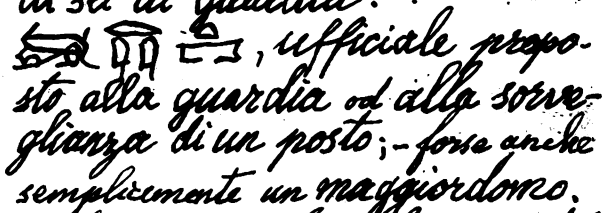 di guardia.
, ufficiale propo-
sto alla guardia od alla sorve-
glianza di un posto; – forse anche
semplicemente un maggiordomo.